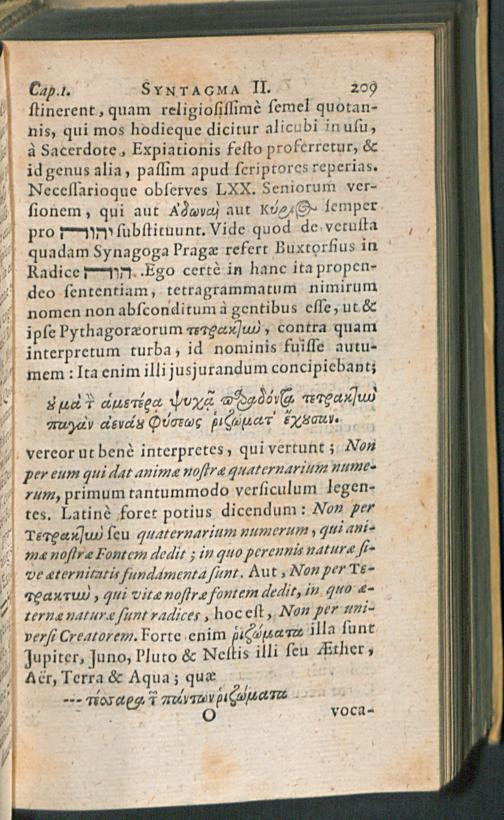 Cap.1. SYNTAGMA II. 209
ſtinerent, quam religioſiſſimè ſemel quotan-
nis, qui mos hodieque dicitur alicubi in uſu,
à Sacerdote, Expiationis feſto proferretur, &
id genus alia, paſſim apud ſcriptores reperias.
Neceſſarioque obſerves LXX. Seniorum ver-
ſionem, qui aut Ἀδωναῒ aut Κύριος ſemper
pro יהוה ſubſtituunt. Vide quod de vetuſta
quadam Synagoga Pragæ refert Buxtorfius in
Radice הוה. Ego certè in hanc ita propen-
deo ſententiam, tetragrammatum nimirum
nomen non abſconditum à gentibus eſſe, ut &
ipſe Pythagoræorum τετρακτὺν, contra quam
interpretum turba, id nominis fuiſſe autu-
mem: Ita enim illi jusjurandum concipiebant;
οὐ μὰ τὸν ἁμετέρᾳ ψυχᾷ παραδόντα τετρακτὺν
παγὰν ἀενάου φύσεως ῥιζώματ' ἔχουσαν.
vereor ut benè interpretes, qui vertunt; Non
per eum qui dat animæ noſtræ quaternarium nume-
rum, primum tantummodo verſiculum legen-
tes. Latinè foret potius dicendum: Non per
Τετρακτὺν ſeu quaternarium numerum, qui ani-
mæ noſtræ Fontem dedit; in quo perennis naturæ ſi-
ve æternitatis fundamenta ſunt. Aut, Non per Τε-
τρακτὺν, qui vitæ noſtræ fontem dedit, in quo æ-
ternæ naturæ ſunt radices, hoc eſt, Non per uni-
verſi Creatorem. Forte enim ῥιζώματα illa ſunt
Jupiter, Juno, Pluto & Neſtis illi ſeu Æther,
Aër, Terra & Aqua; quæ
--- τέσσαρα τῶν πάντων ῥιζώματα
O voca-